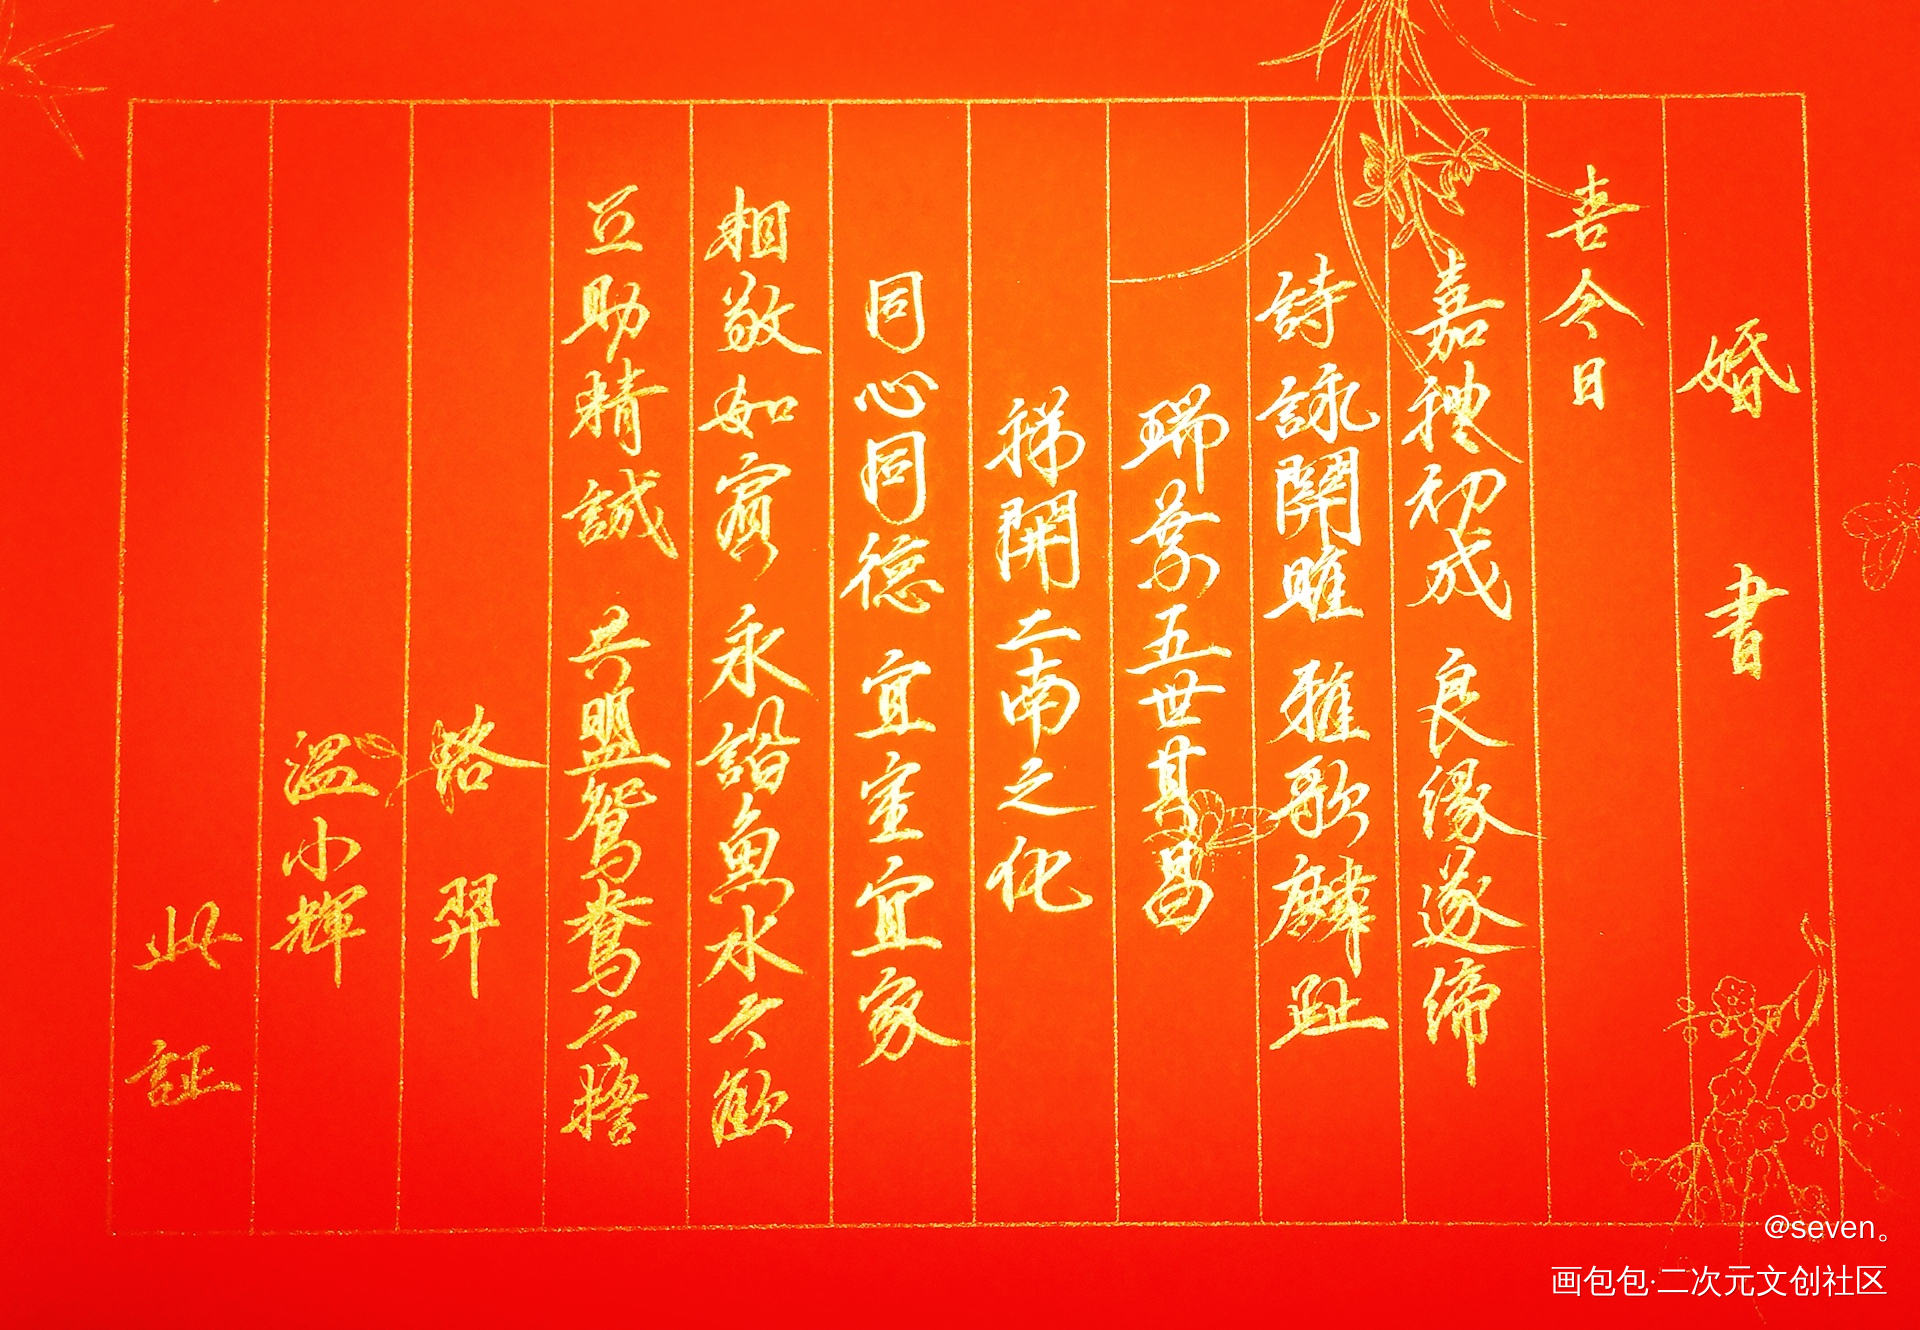 婚書
喜今日
嘉禮初成 良緣遂締
詩詠關雎 雅歌麟趾
瑞葉五世其昌
祥開二南之化
同心同德 宜室宜家
相敬如賓 永諧魚水之歡
互助精誠 共盟鴛鴦之誓
路羿
溫小輝
此証
@seven。
画包包·二次元文创社区